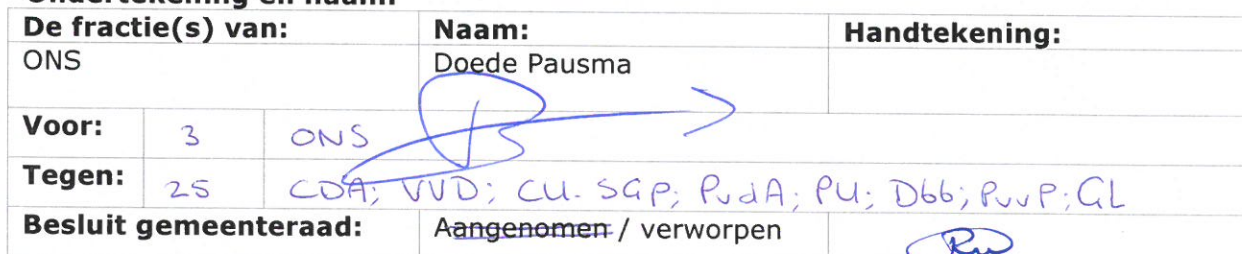 De fractie(s) van: Naam: Handtekening:
ONS Doede Pausma
Voor: 3 ONS
Tegen: 25 CDA; VVD; CU-SGP; PvdA; PU; D66; PvvP; GL
Besluit gemeenteraad: Aangenomen / verworpen